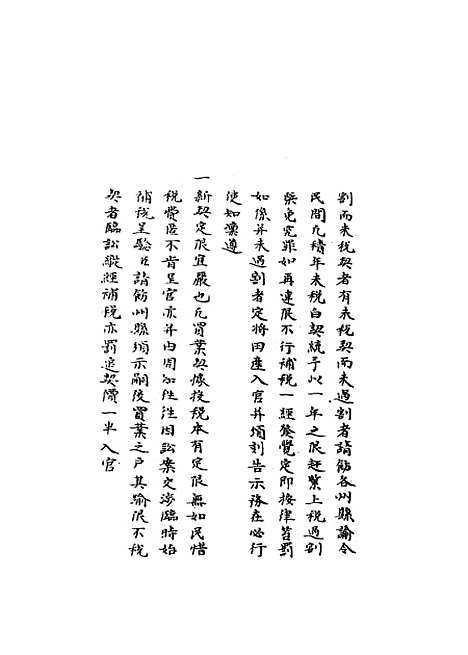 割而未稅契者有未稅契而未過割者請飭各州縣諭令
民間凡積年未稅白契統予以一年之限赶緊上稅過割
槩免究罪如再違限不行補稅一經發覺定即按律笞罰
如係并未過割者定將田產入官并頒刻告示務在必行
使知凜遵
一新契定限宜嚴也凡買業契據投稅本有定限無如民惜
稅費匿不肯呈官亦并由周知徃徃因訟案交涉臨時始
補稅呈驗只請飭州縣頒示嗣後買業之戶其踰限不稅
契者臨訟縱經補稅亦罰追契價一半入官